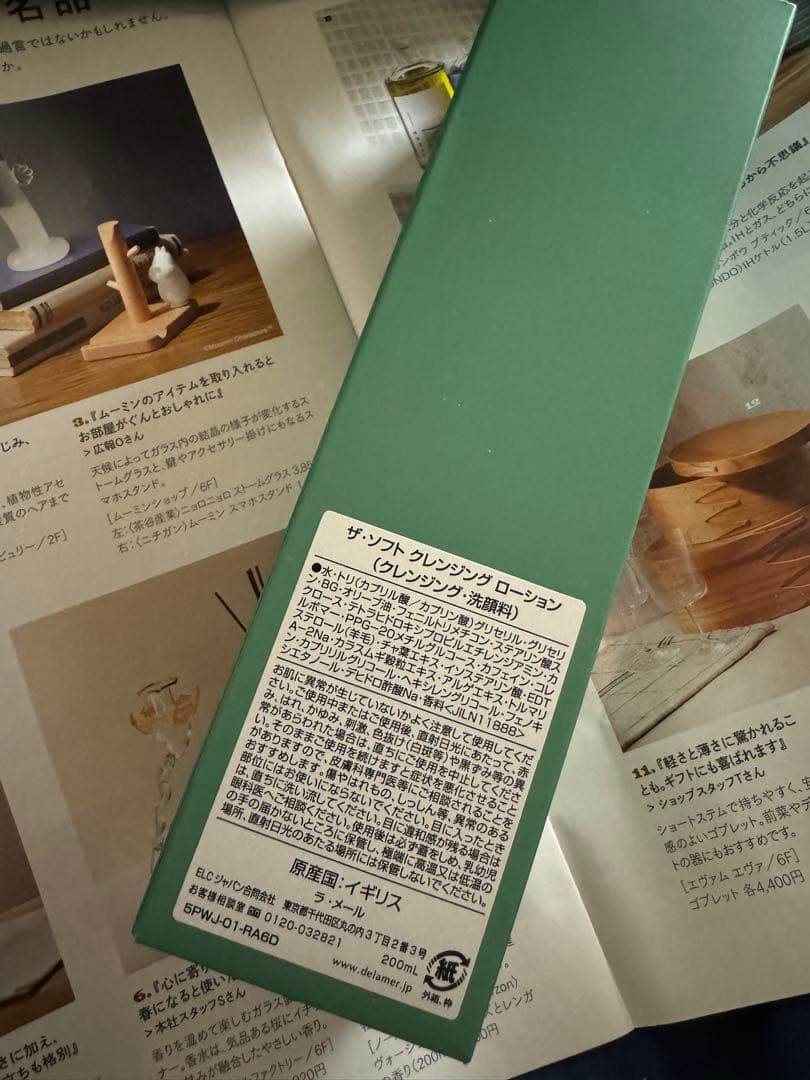 名品
過言ではないかもしれません。
か。
©Moomin Characters™
3.『ムーミンのアイテムを取り入れると
お部屋がぐんとおしゃれに』
> 広報Oさん
天候によってガラス内の結晶の様子が変化するス
トームグラスと、鍵やアクセサリー掛けにもなるス
マホスタンド。
[ムーミンショップ/6F]
左:〈茶谷産業〉ニョロニョロ ストームグラス 3,85
右:〈ニチガン〉ムーミン スマホスタンド
じみ、
、植物性アセ
質のヘアまで
ビュリー/2F]
から不思議』
分と化学反応を起
IHとガス、どちら
ンボウ ブティック/6
NDO〉IHケトル(1.5L)
12
ザ・ソフト クレンジング ローション
(クレンジング・洗顔料)
●水・トリ(カプリル酸/カプリン酸)グリセリル・グリセリ
ン・BG・オリーブ油・フェニルトリメチコン・ステアリン酸ス
クロース・テトラヒドロキシプロピルエチレンジアミン・カ
ルボマー・PPG-20メチルグルコース・カフェイン・コレ
ステロール(羊毛)・チャ葉エキス・イソステアリン酸・EDT
A-2Na・カラスムギ穀粒エキス・アルゲエキス・トルマリ
ン・カプリリルグリコール・ヘキシレングリコール・フェノキ
シエタノール・デヒドロ酢酸Na・香料<JLN11888>
お肌に異常が生じていないかよく注意して使用してくだ
さい。ご使用中またはご使用後、直射日光にあたって、赤
み、はれ、かゆみ、刺激、色抜け(白斑等)や黒ずみ等の異
常があらわれた場合は、直ちにご使用を中止してくださ
い。そのままご使用を続けますと症状を悪化させるこ
とがありますので、皮膚科専門医等にご相談されることを
おすすめします。傷やはれもの、しっしん等、異常のある
部位にはお使いにならないでください。目に入ったとき
は、直ちに洗い流してください。目に違和感が残る場合は
眼科医へご相談ください。使用後は必ず蓋をしめ、乳幼児
の手の届かないところに保管し、極端に高温又は低温の
場所、直射日光のあたる場所には保管しないでください。
原産国:イギリス
ラ・メール
ELC ジャパン合同会社 東京都千代田区丸の内3丁目2番3号
お客様相談室 0120-032821 200mL
5PWJ-01-RA6D www.delamer.jp
紙
外箱、枠
11.『軽さと薄さに驚かれるこ
とも。ギフトにも喜ばれます』
> ショップスタッフTさん
ショートステムで持ちやすく、
感のよいゴブレット。前菜やデ
トの器にもおすすめです。
[エヴァム エヴァ/6F]
ゴブレット 各4,400円
6.『心に寄り
春になると使い
> 本社スタッフSさん
香りを温めて楽しむガラス
ナー。香水は、気品ある桜にイチ
みが融合したやさしい香り。
ファクトリー/6F]
さに加え、
立ちも格別』